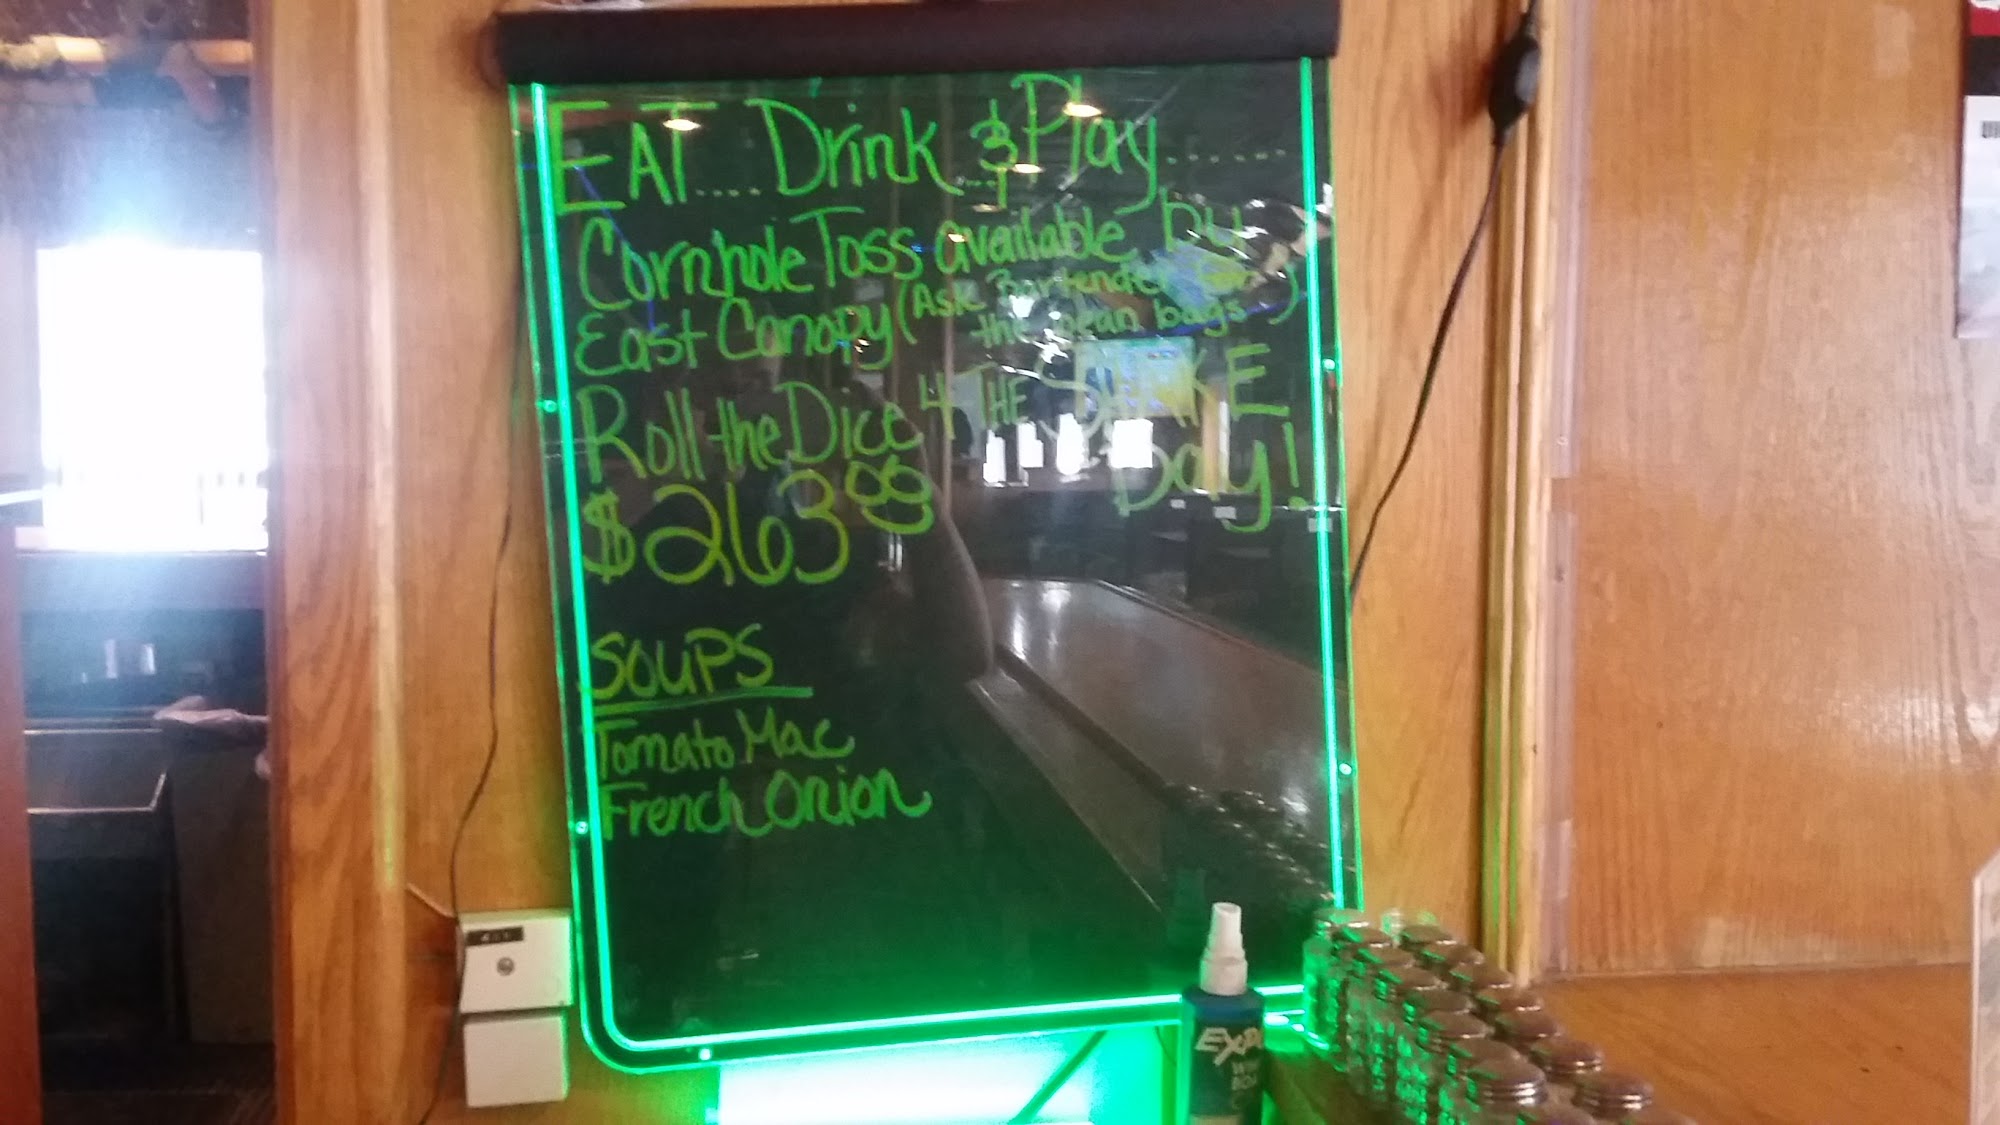 EAT.... Drink...& Play.......
Cornhole Toss available by
East Canopy (Ask Bartender for
the bean bags)
Roll the Dice 4 THE SHAKE
Day!
$263.00
SOUPS
Tomato Mac
French Onion
EXPO